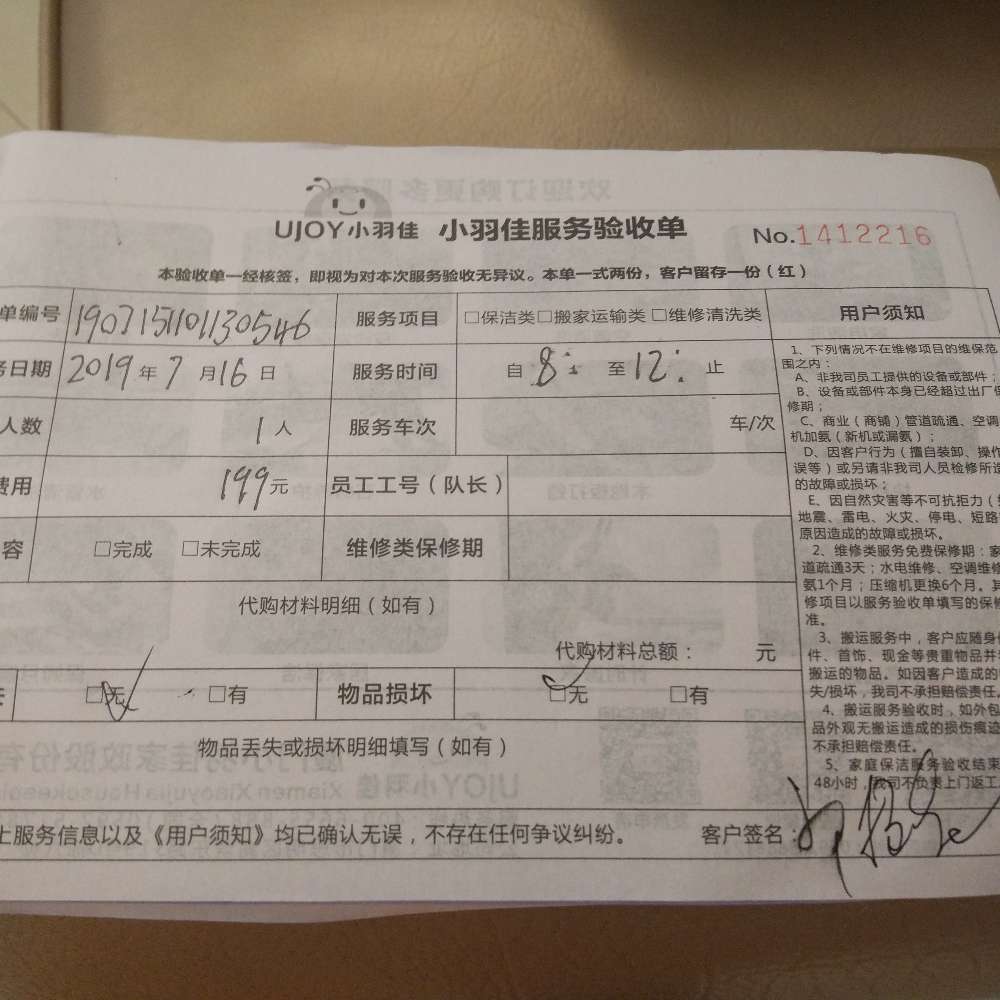 UJOY小羽佳 小羽佳服务验收单 No.1412216
本验收单一经核签，即视为对本次服务验收无异议。本单一式两份，客户留存一份（红）
单编号 1907151101130546 服务项目 □保洁类□搬家运输类 □维修清洗类
务日期 2019年7月16日 服务时间 自 8: 至12: 止
人数 1人 服务车次 车/次
费用 199元 员工工号（队长）
容 □完成 □未完成 维修类保修期
代购材料明细（如有）
代购材料总额： 元
□无 □有 物品损坏 □无 □有
物品丢失或损坏明细填写（如有）
上服务信息以及《用户须知》均已确认无误，不存在任何争议纠纷。 客户签名：
用户须知
1、下列情况不在维修项目的维保范
围之内：
A、非我司员工提供的设备或部件；
B、设备或部件本身已经超过出厂保
修期；
C、商业（商铺）管道疏通、空调
机加氨（新机或漏氨）；
D、因客户行为（擅自装卸、操作
误等）或另请非我司人员检修所造
的故障或损坏；
E、因自然灾害等不可抗拒力（
地震、雷电、火灾、停电、短路
原因造成的故障或损坏。
2、维修类服务免费保修期：家
道疏通3天；水电维修、空调维修
氨1个月；压缩机更换6个月。其
修项目以服务验收单填写的保修
准。
3、搬运服务中，客户应随身
件、首饰、现金等贵重物品并
搬运的物品。如因客户造成的
失/损坏，我司不承担赔偿责任。
4、搬运服务验收时，如外包
品外观无搬运造成的损伤痕迹
不承担赔偿责任。
5、家庭保洁服务验收结束
48小时，我司不负责上门返工